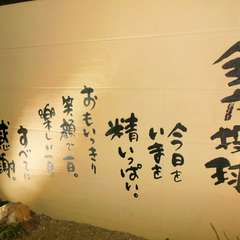 全力投球
今日を
いまを
精いっぱい。
おもいっきり
笑顔で一日。
楽しい一日
すべてに
感謝。